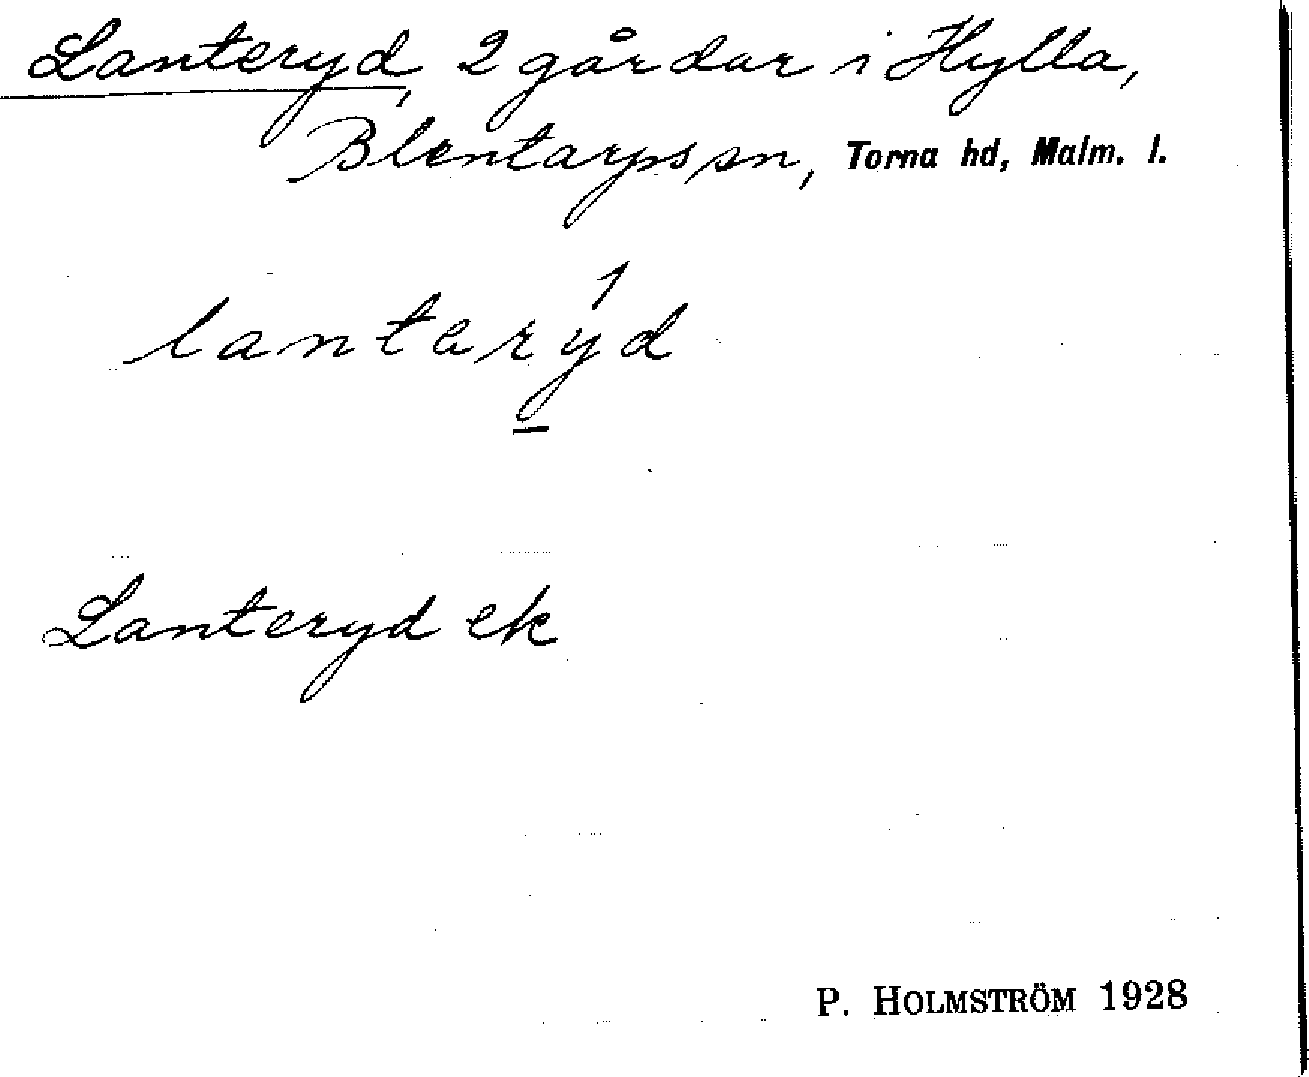 Lanteryd, 2 gårdar i Hylla,
Blentarps sn, Torna hd, Malm. l.
lantarýd
Lanteryd ek
P. HOLMSTRÖM 1928